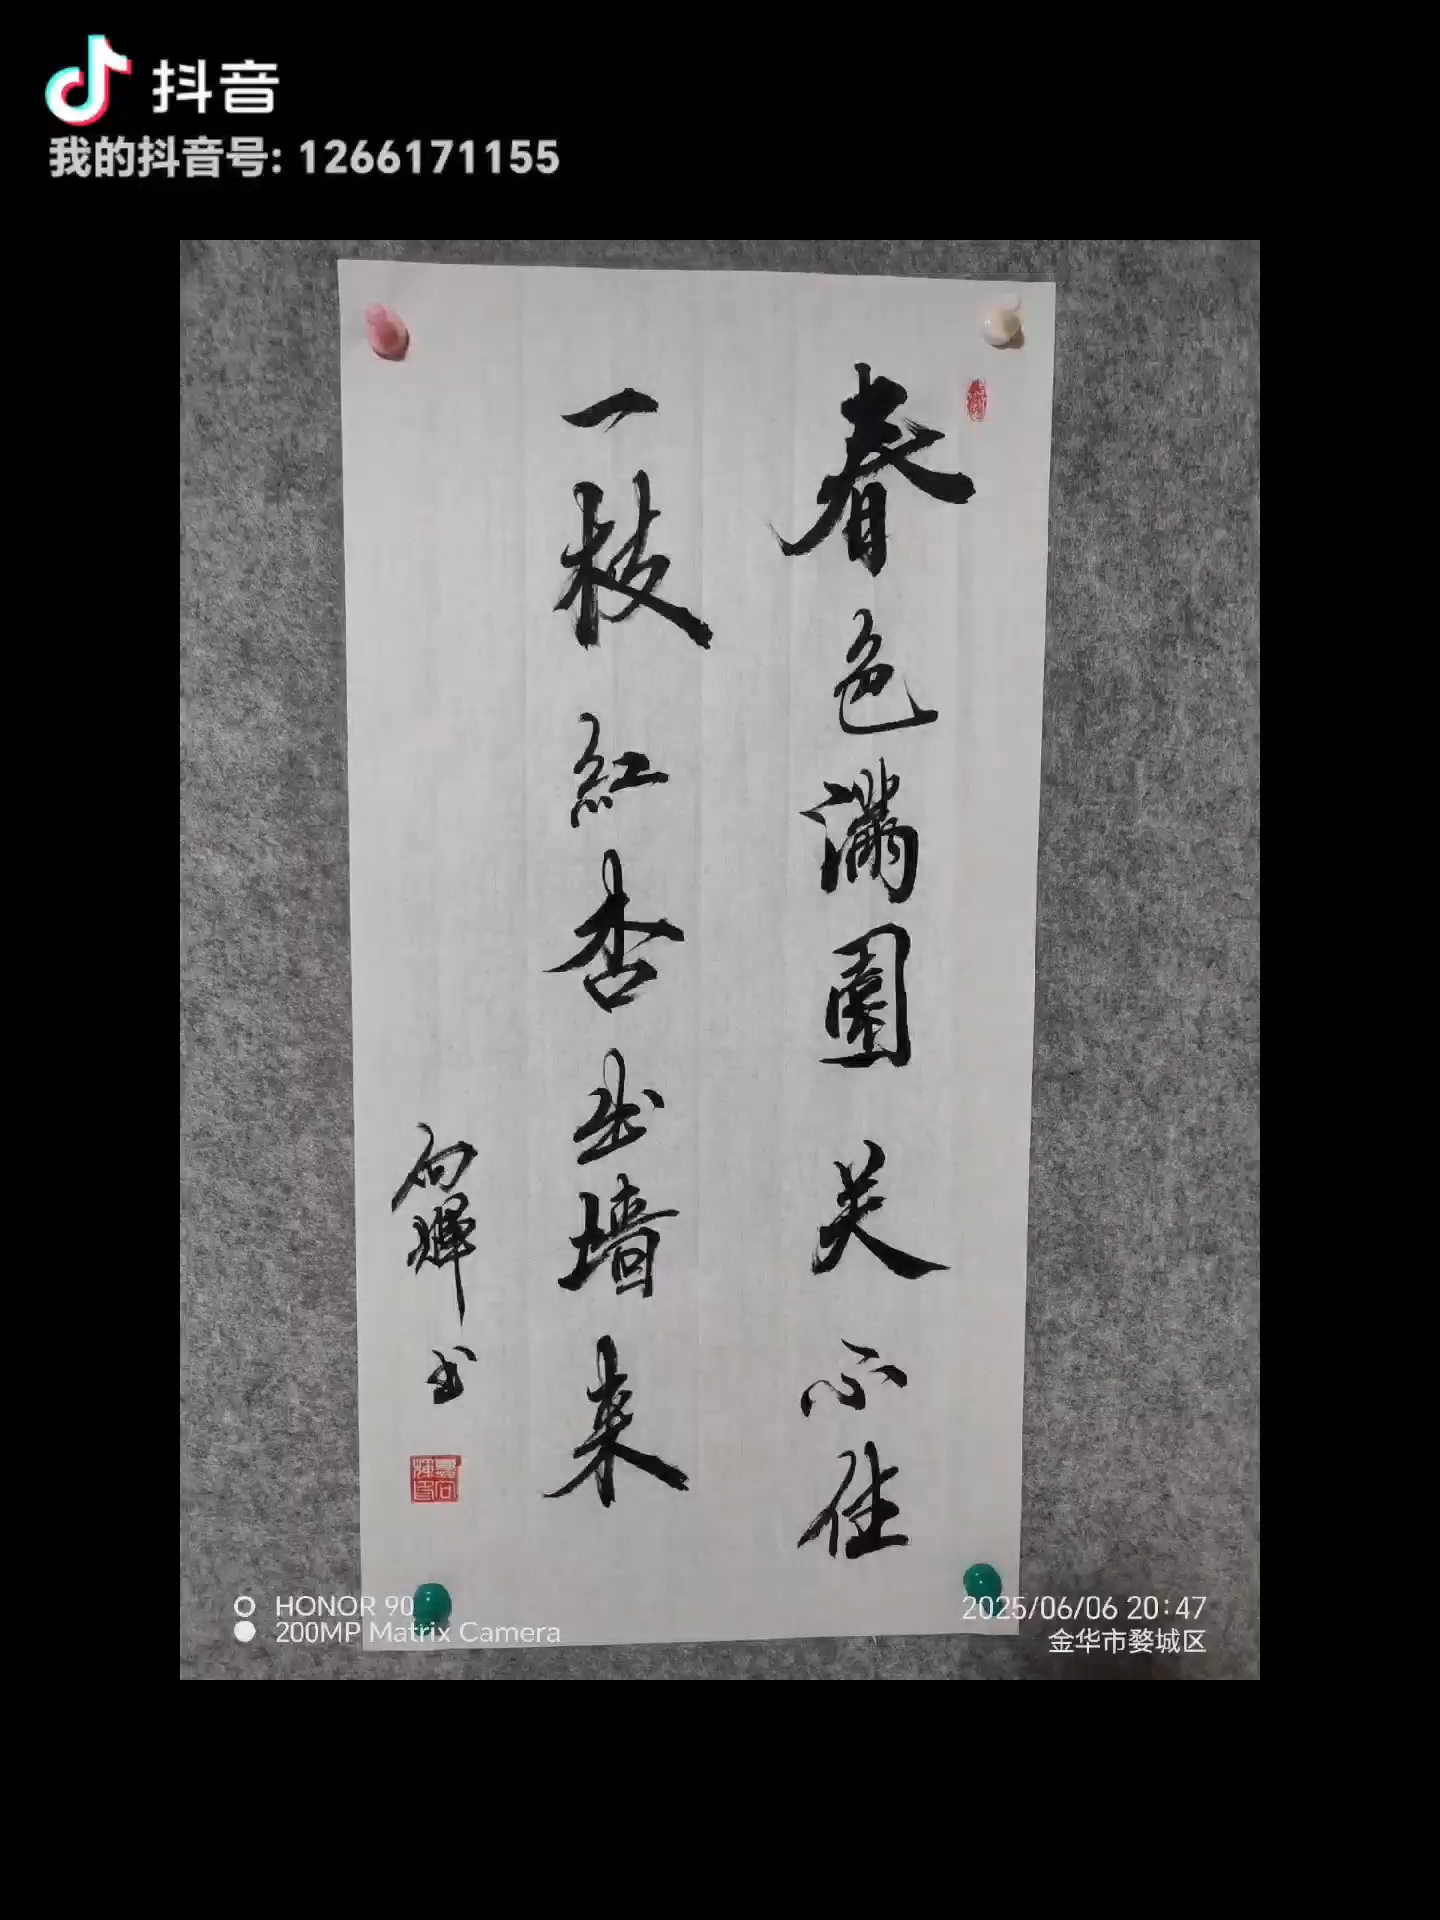 抖音
我的抖音号: 1266171155
春色满園关不住
一枝紅杏出墙来
向輝书
HONOR 90
200MP Matrix Camera
2025/06/06 20:47
金华市婺城区